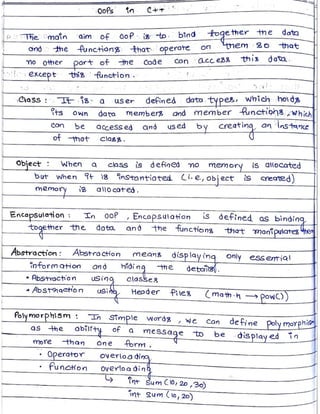 OOPs in C++
The main aim of OOP is to bind together the data
and the functions that operate on them so that
no other part of the code can access this data
except this function.
Class : It is a user defined data types, which holds
its own data members and member functions, which
can be accessed and used by creating an instance
of that class.
Object : When a class is defined no memory is allocated
but when it is instantiated (i.e, object is created)
memory is allocated.
Encapsulation : In OOP, Encapsulation is defined as binding
together the data and the functions that manipulates them
Abstraction : Abstraction means displaying only essential
information and hiding the details.
• Abstraction using classes
• Abstraction using Header files (math.h → pow())
Polymorphism : In simple words, we can define polymorphism
as the ability of a message to be displayed in
more than one form.
• Operator overloading
• Function overloading
↳ int sum(10, 20, 30)
int sum(10, 20)